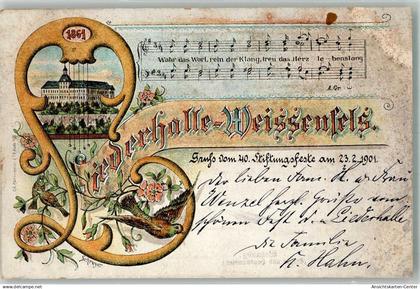 1861
Wahr das Wort, rein der Klang, treu das Herz lebenslang
A. Gr.
Liederhalle-Weissenfels.
Gruss vom 40. Stiftungsfeste am 23.2.1901.
der lieben Fam. H. u. Frau
Wenzel herzl. Grüße vom
schönen Fest d. Liederhalle
die Familie
H. Hahn.